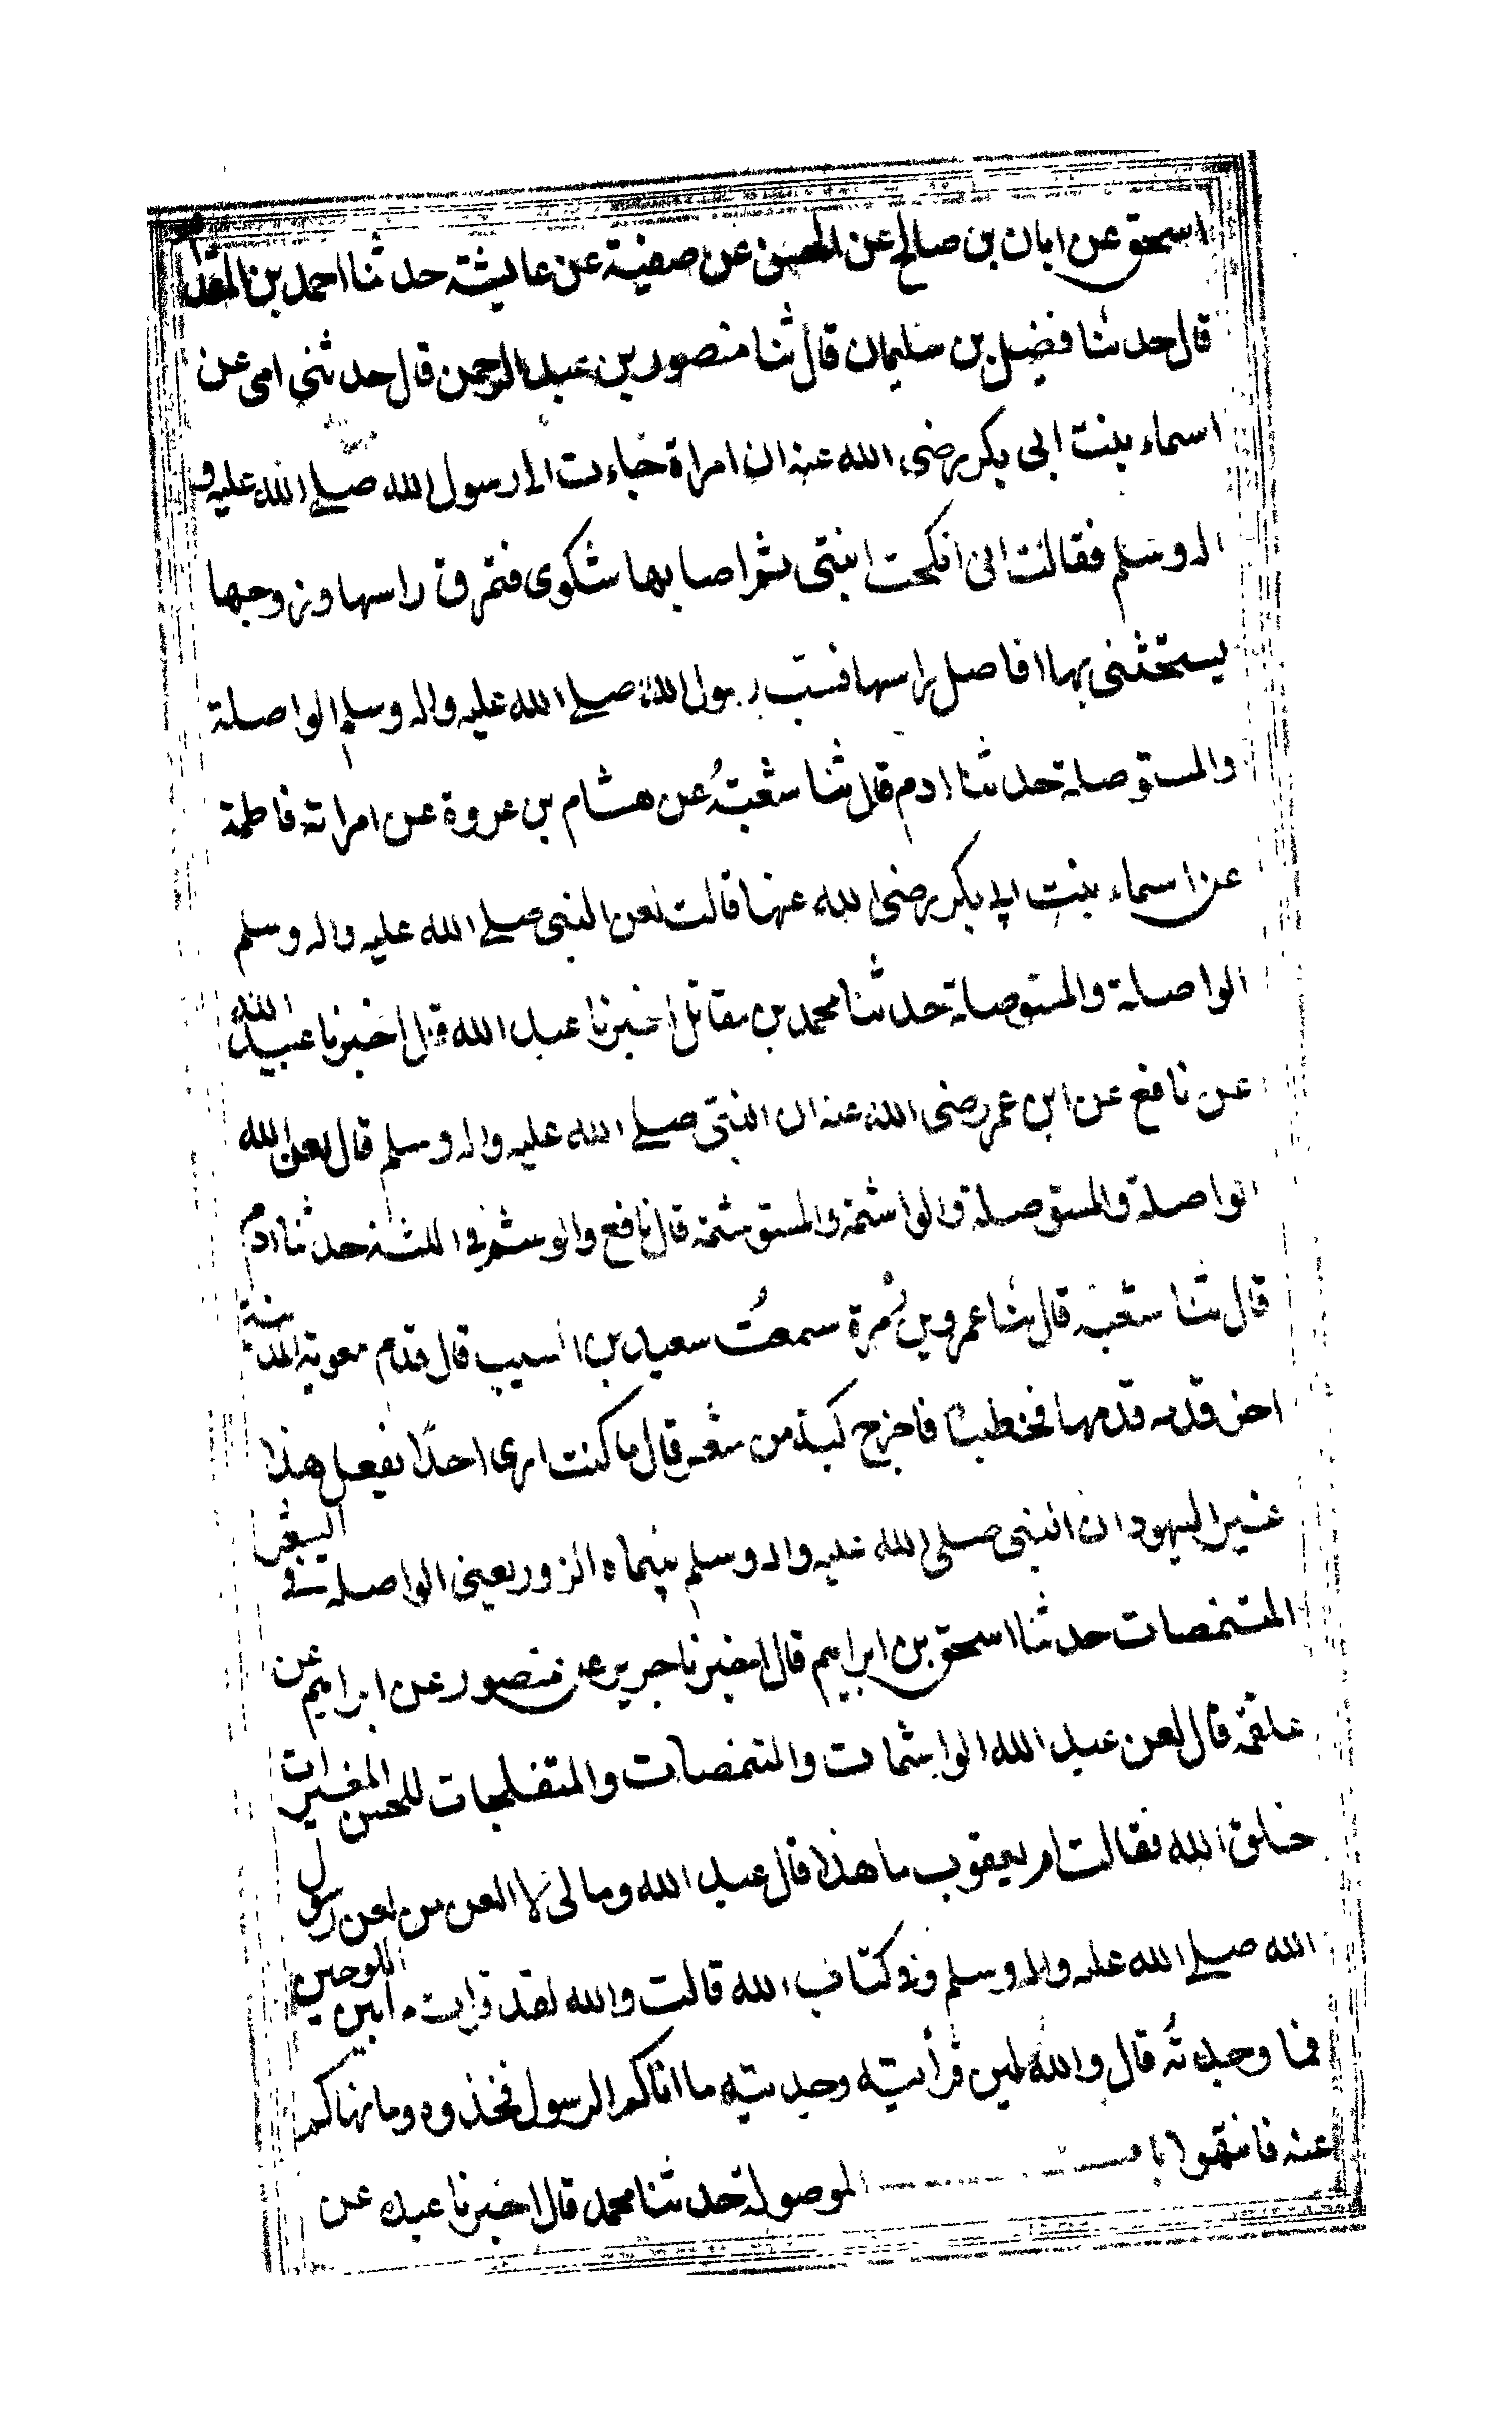 اسحق عن ابان بن صالح عن الحسن عن صفية عن عايشة حدثنا احمد بن المقدام
قال حدثنا فضيل بن سليمان قال ثنا منصور بن عبد الرحمن قال حدثني امي عن
اسماء بنت ابي بكر رضى الله عنه ان امراة جاءت الى رسول الله صلى الله عليه و
اله وسلم فقالت انى انكحت ابنتى ثم اصابها شكوى فتمرق راسها وزوجها
يستحثنى بها افاصل راسها فسب رسول الله صلى الله عليه واله وسلم الواصلة
والمستوصلة حدثنا ادم قال ثنا شعبة عن هشام بن عروة عن امراته فاطمة
عن اسماء بنت ابي بكر رضى الله عنها قالت لعن النبي صلى الله عليه واله وسلم
الواصلة والمستوصلة حدثنا محمد بن مقاتل اخبرنا عبد الله قال اخبرنا عبيد الله
عن نافع عن ابن عمر رضى الله عنه ان النبي صلى الله عليه واله وسلم قال لعن الله
الواصلة والمستوصلة والواشمة والمستوشمة قال نافع والوشم فى اللثه حدثنا ادم
قال ثنا شعبه قال ثنا عمرو بن مرة سمعت سعيد بن المسيب قال قدم معوية المدينة
اخر قدمه قدمها فخطبنا فاخرج كبة من شعر قال ما كنت ارى احدا يفعل هذا
غير اليهود ان النبي صلى الله عليه واله وسلم سماه الزور يعنى الواصله فى الشعر
المتنمصات حدثنا اسحق بن ابراهيم قال اخبرنا جرير عن منصور عن ابراهيم عن
علقمة قال لعن عبد الله الواشمات والمتنمصات والمتفلجات للحسن المغيرات
خلق الله فقالت ام يعقوب ما هذا قال عبد الله وما لى لا العن من لعن رسول
الله صلى الله عليه واله وسلم وفى كتاب الله قالت والله لقد قرات ما بين اللوحين
فما وجدته قال والله لئن قرأتيه وجدتيه ما اتاكم الرسول فخذوه وما نهاكم
عنه فانتهوا باب الموصولة حدثنا محمد قال اخبرنا عبده عن